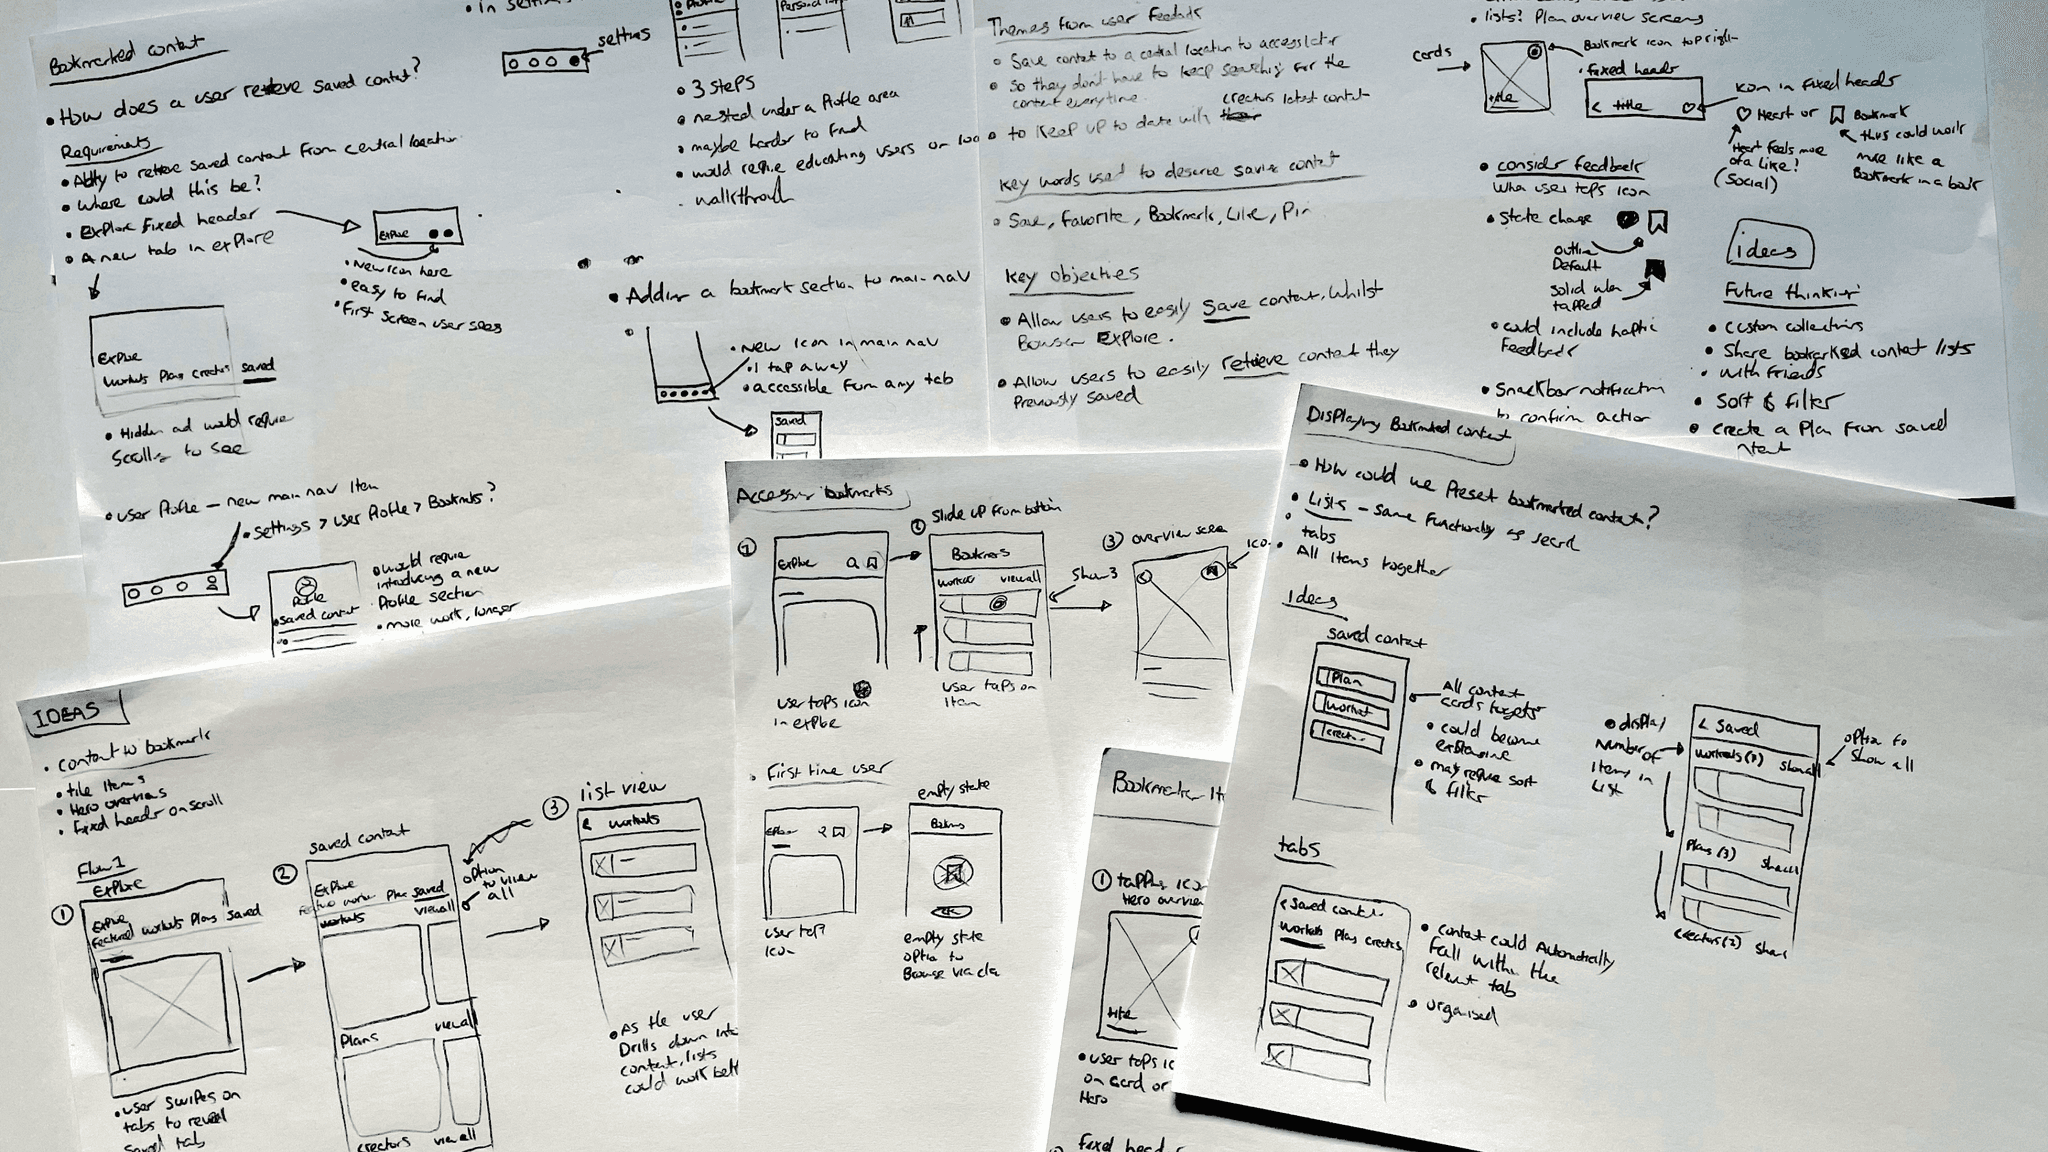 Bookmarked content
• How does a user retrieve saved content?
Requirements
• Ability to retrieve saved content from central location
• Where could this be?
• Explore fixed header
• A new tab in explore
Explore
• New icon here
• easy to find
• First screen user sees
Explore
Workouts Plans Creators saved
• Hidden and would require
Scrolling to see
• User Profile – new main nav item
• Settings > User Profile > Bookmarks?
Profile
• Saved content
• would require
introducing a new
Profile section
• more work, longer
• In settings
settings
Profile
Personal
• 3 steps
• nested under a Profile area
• maybe harder to find
• would require educating users on
• walkthrough
• Adding a bookmark section to main nav
• New icon in main nav
• 1 tap away
• accessible from any tab
Saved
Themes from user feedback
• Save content to a central location to access later
• So they don't have to keep searching for the
content everytime
creators latest content
• to keep up to date with
Key words used to describe saving content
• Save, Favorite, Bookmark, Like, Pin
Key objectives
• Allow users to easily save content, whilst
Browser Explore.
• Allow users to easily retrieve content they
Previously saved
• lists? Plan overview screens
cards
Bookmark icon top right
title
• fixed header
< title
Icon in fixed headers
Heart or Bookmark
Heart feels more
of a like?
(Social)
this could work
more like a
Bookmark in a book
• consider feedback
when user taps icon
• State change
outline
Default
Solid when
tapped
• could include haptic
Feedback
• Snackbar notification
to confirm action
ideas
Future thinking
• Custom collections
• Share bookmarked content lists
• with friends
• Sort & filter
• create a Plan from saved
IDEAS
• content to bookmark
• tile items
• Hero overviews
• Fixed header on scroll
Flow 1
Explore
1
Explore
Featured workouts Plans Saved
• user swipes on
tabs to reveal
Saved tab
2
saved content
Explore
Plans saved
workouts view all
Plans view all
Creators view all
option
to view
all
3
list view
< workouts
• As the user
Drills down into
content, lists
could work
Accessing bookmarks
1
Explore
user taps icon
in explore
2
Slide up from bottom
Bookmarks
workouts view all
Show 3
user taps on
item
3
overview screen
• First time user
Explore
user taps
icon
empty state
empty state
option to
Browse via cta
1
tapping
title
• user taps
on card or
Hero
Displaying Bookmarked content
• How could we present bookmarked content?
• Lists – same functionality as search
• tabs
• All items together
Ideas
saved content
Plan
Workout
Creator
All content
cards together
• could become
expansive
• may require sort
& filter
• display
number of
items in
list
< Saved
workouts (3) show all
Plans (3)
Creators (2)
option to
show all
tabs
< Saved content
Workouts Plans Creators
• content could Automatically
Fall within the
relevant tab
• organised